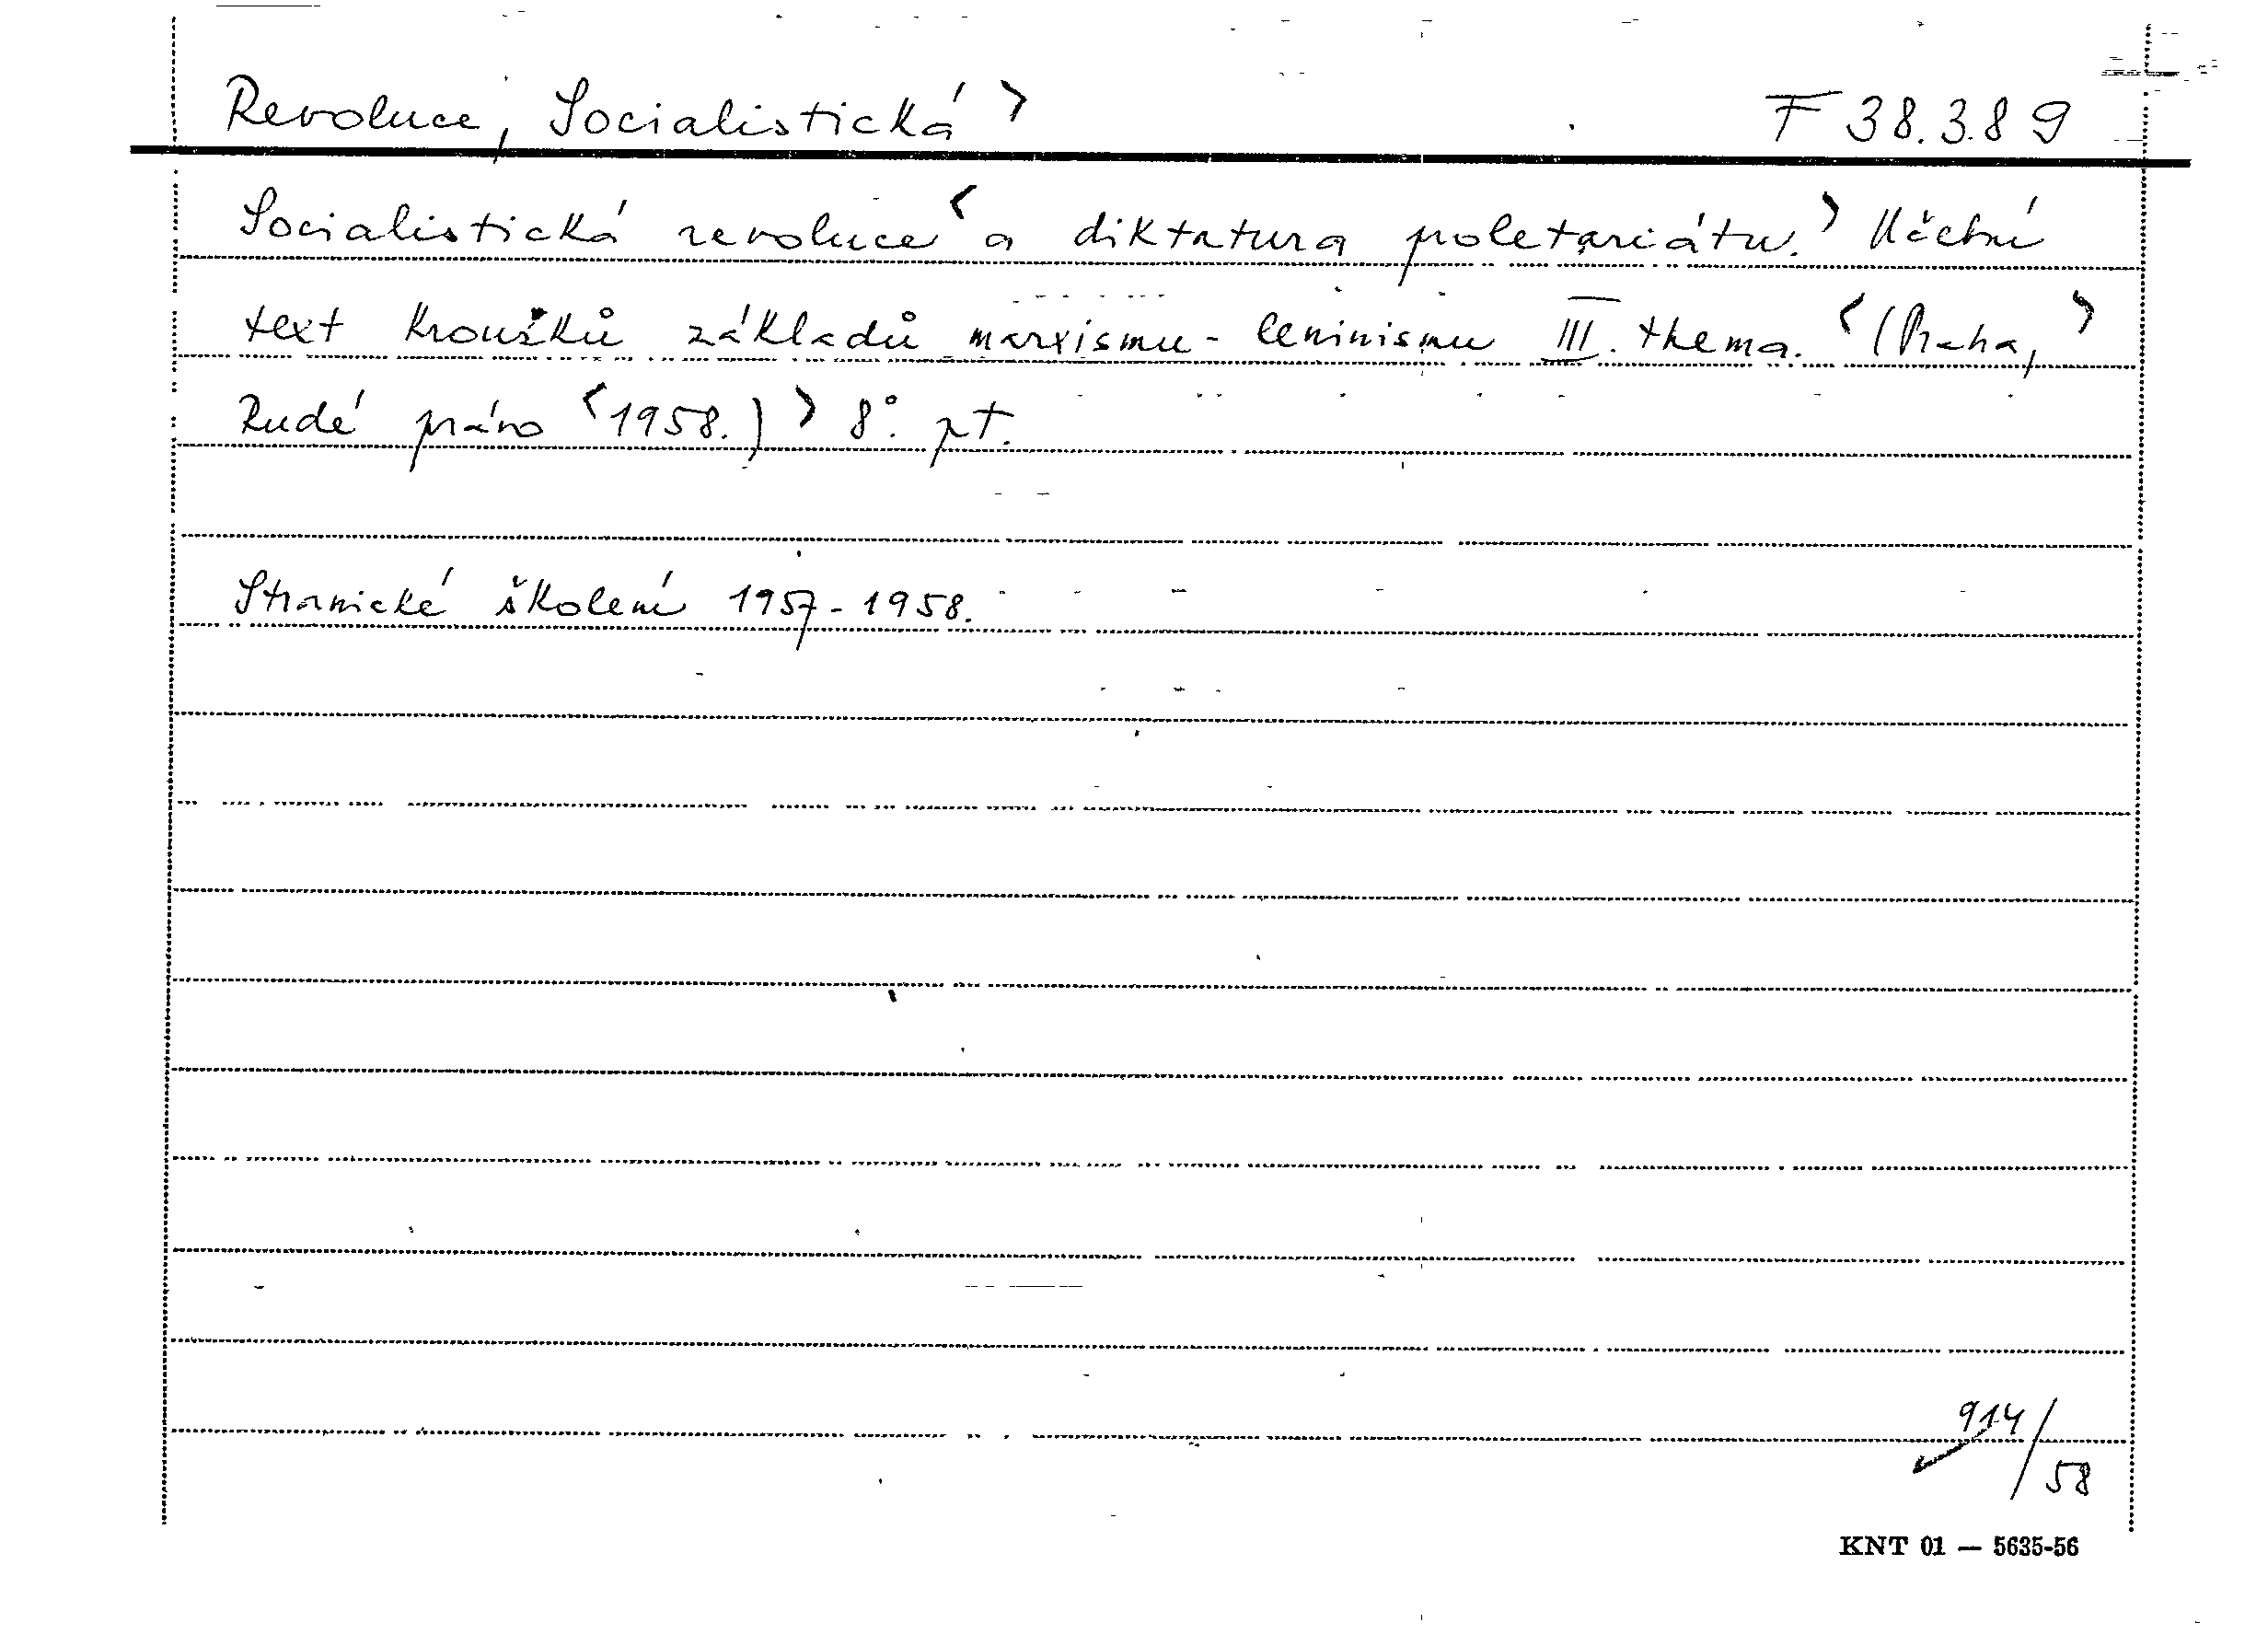 Revoluce, Socialistická > F 38.389
Socialistická revoluce < a diktatura proletariátu. > Učební
text kroužků základů marxismu-leninismu III. thema. < (Praha, >
Rudé právo < 1958.) > 8°. pt.
Stranické školení 1957-1958.
914/58
KNT 01 — 5635-56